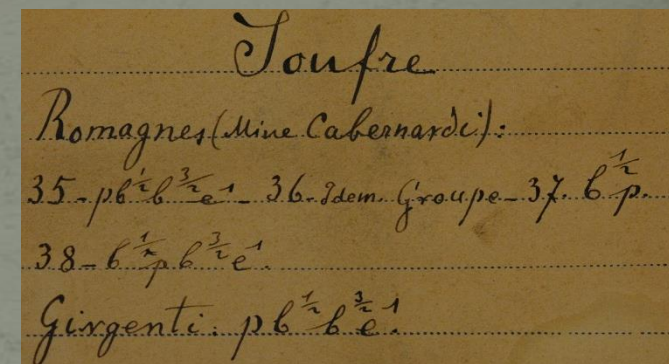 Soufre
Romagnes (Mine Cabernardi):
35 - pb½b³⁄₂e¹ - 36 - Idem. Groupe - 37. b½p.
38 - b½pb³⁄₂e¹.
Girgenti. pb½b³⁄₂e¹.